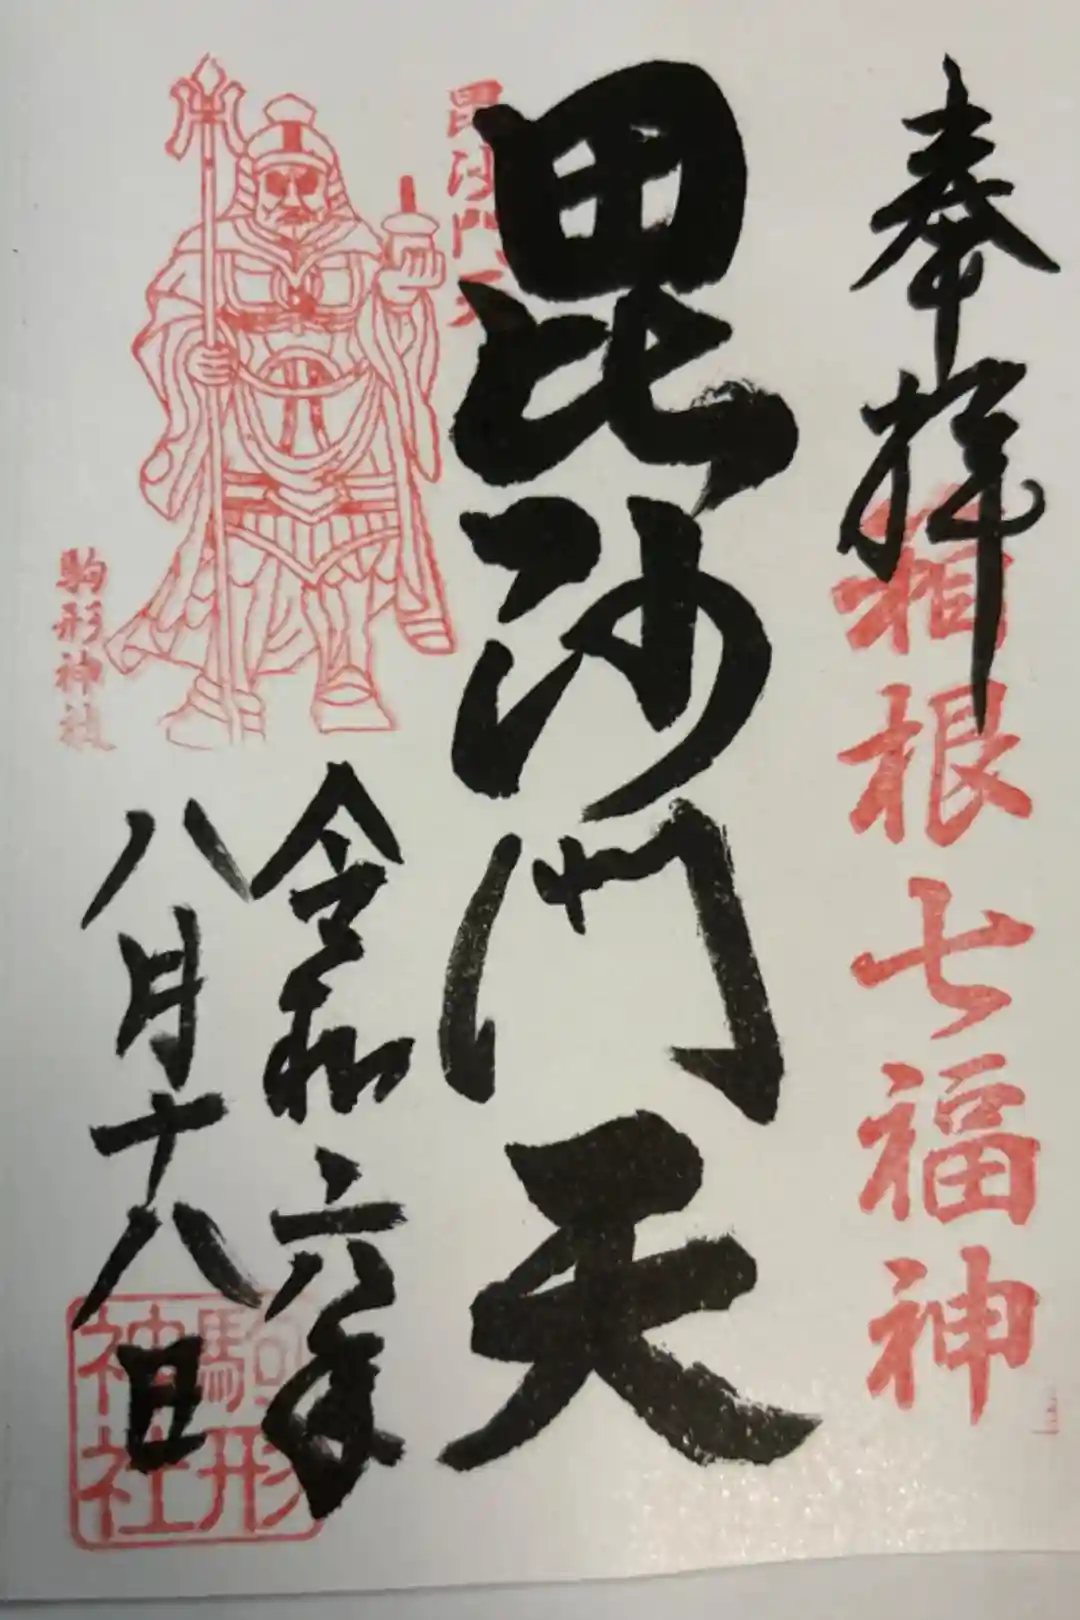 奉拝
箱根七福神
毘沙門天
毘沙門天
令和六年
八月十八日
駒形神社
駒形神社